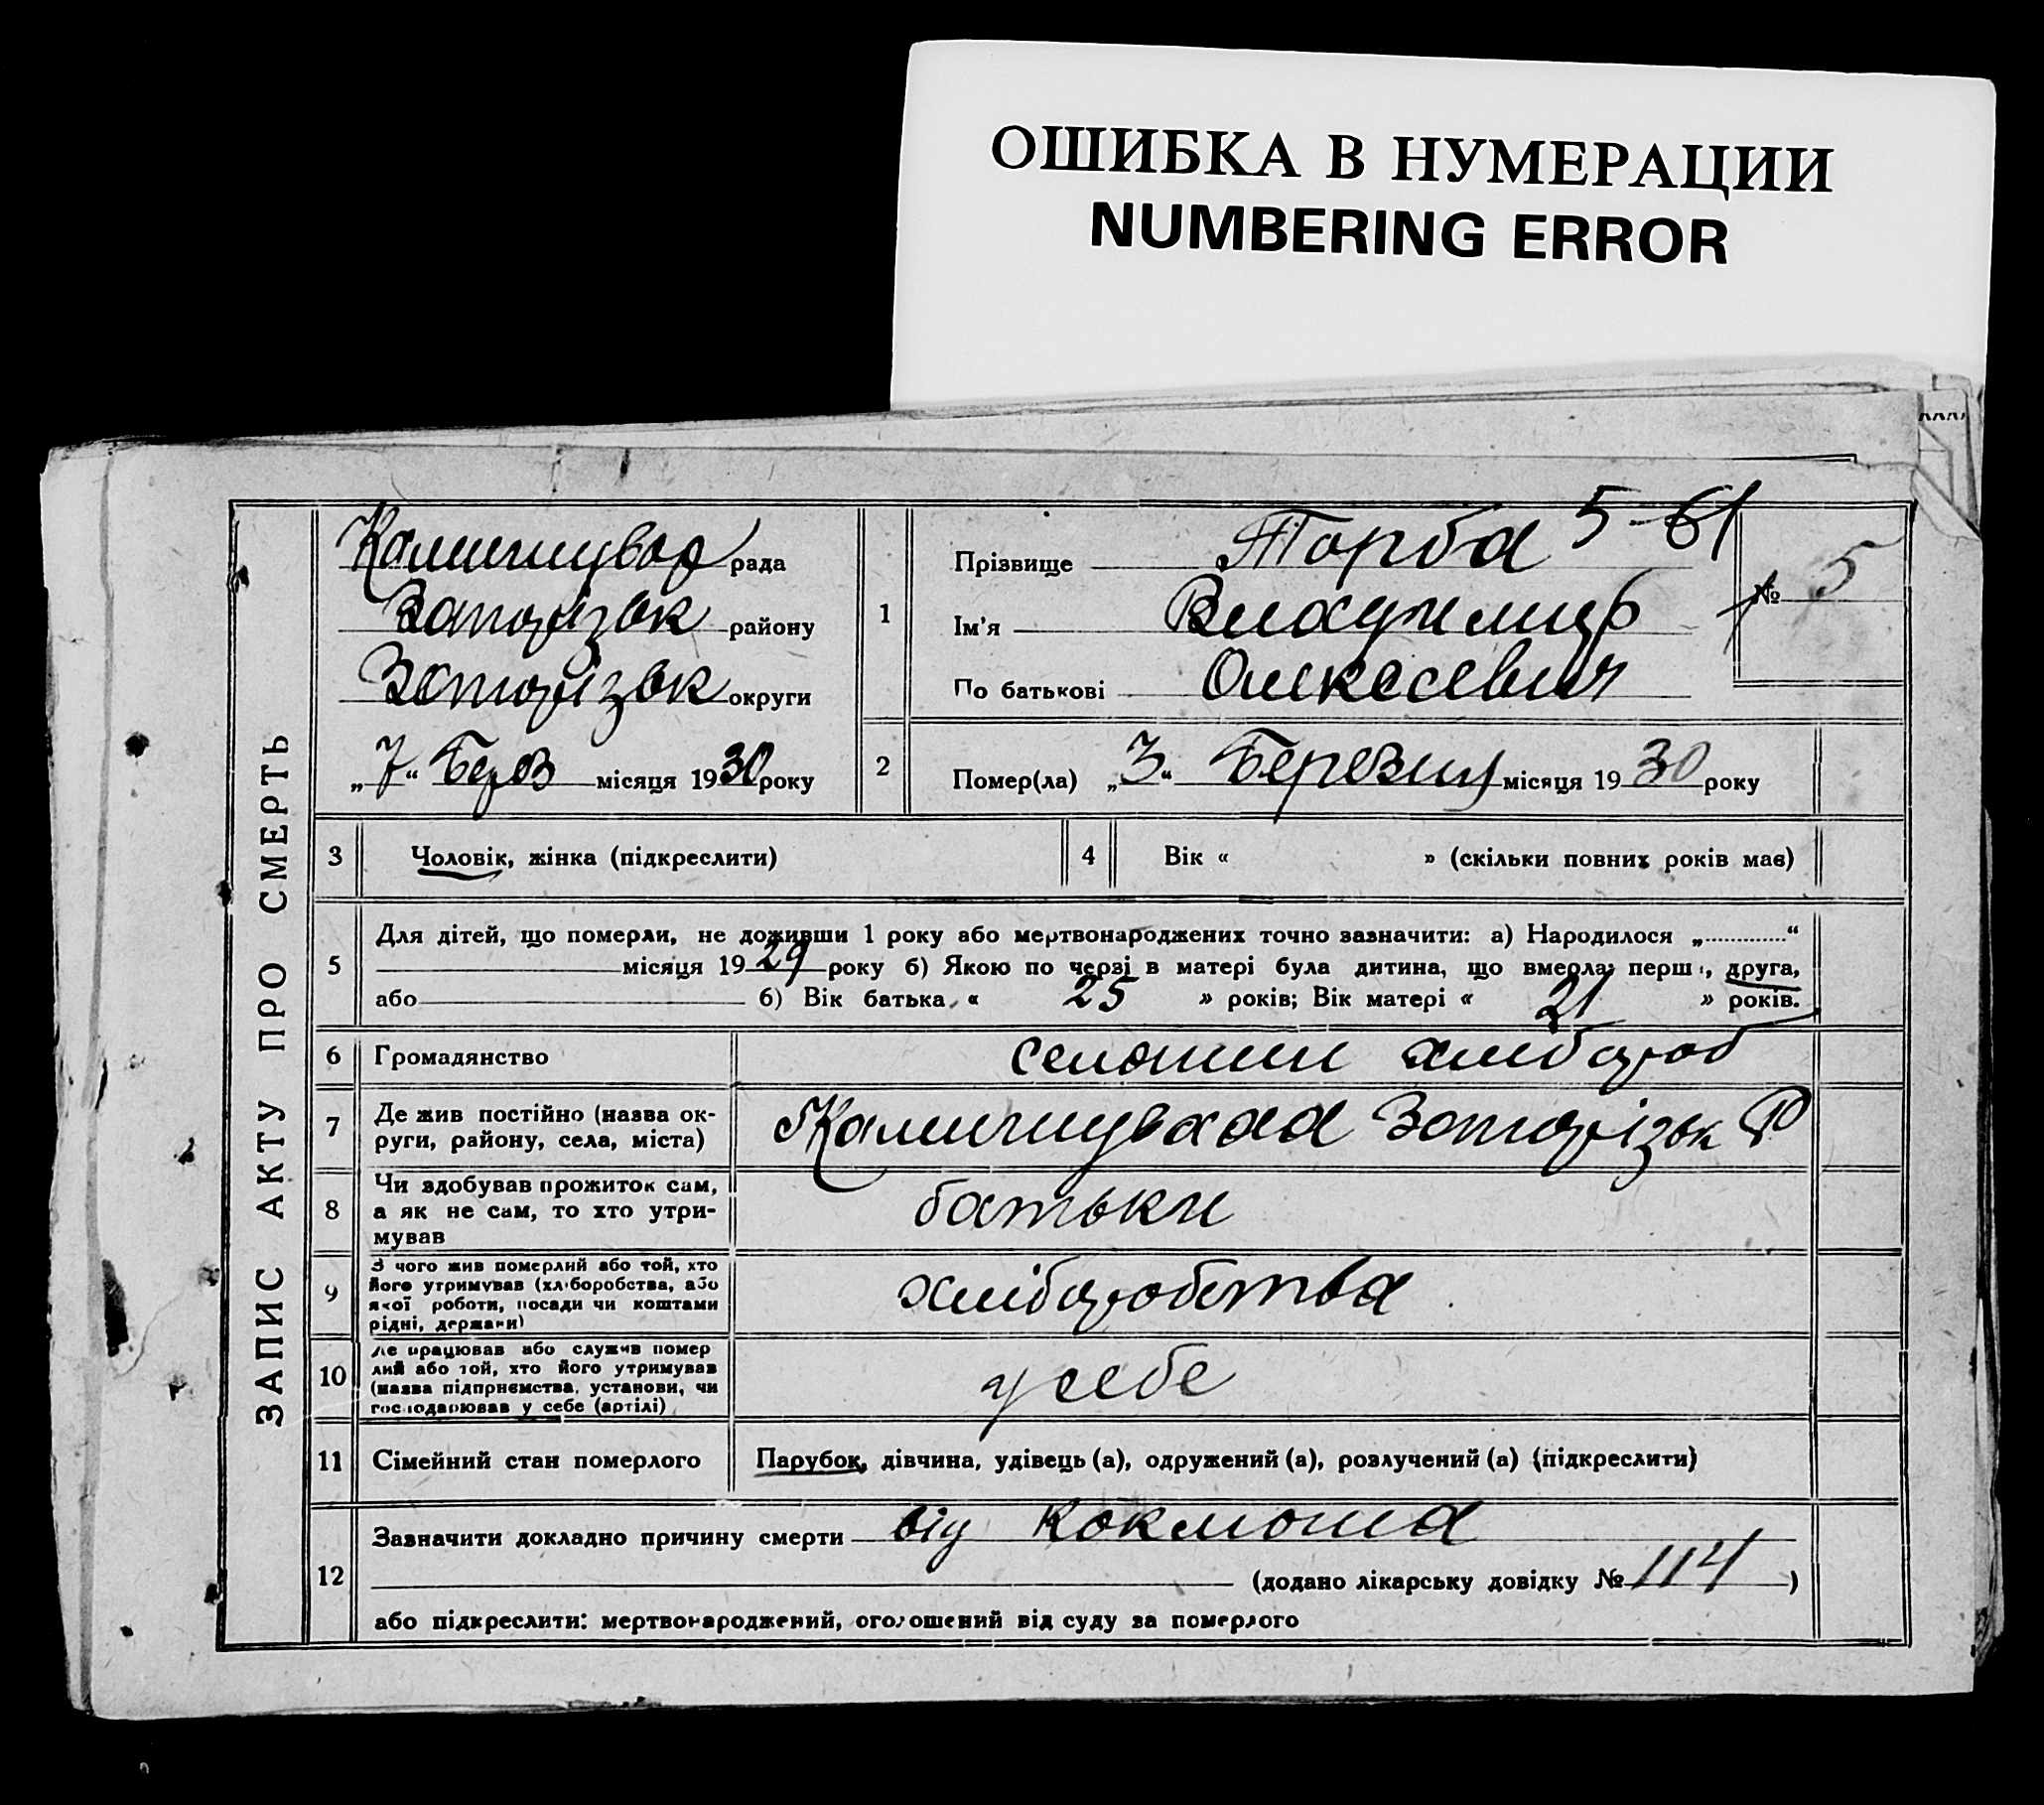 ОШИБКА В НУМЕРАЦИИ
NUMBERING ERROR
ЗАПИС АКТУ ПРО СМЕРТЬ
рада
Запорізьк району
Запорізьк округи
„7“ Берез місяця 1930 року
1
Прізвище Торба 5-61
Ім'я Владимир
По батькові Олексеевич
№ 5
2
Помер(ла) „3“ Березня місяця 1930 року
3 Чоловік, жінка (підкреслити)
4 Вік « » (скільки повних років має)
5
Для дітей, що померли, не доживши 1 року або мертвонароджених точно зазначити: а) Народилося „............“
місяця 1929 року б) Якою по черзі в матері була дитина, що вмерла: перша, друга,
або 6) Вік батька « 25 » років; Вік матері « 21 » років.
6 Громадянство селянин хлібороб
7 Де жив постійно (назва ок-
руги, району, села, міста)
Запорізьк Р
8 Чи здобував прожиток сам,
а як не сам, то хто утри-
мував
батьки
9 З чого жив померлий або той, хто
його утримував (хліборобства, або
якої роботи, посади чи коштами
рідні, держави)
хліборобства
10 Де працював або служив помер
лий або той, хто його утримував
(назва підприємства, установи, чи
господарював у себе (артілі)
у себе
11 Сімейний стан померлого Парубок, дівчина, удівець (а), одружений (а), розлучений (а) (підкреслити)
12
Зазначити докладно причину смерти від коклюша
(додано лікарську довідку № 114)
або підкреслити: мертвонароджений, оголошений від суду за померлого